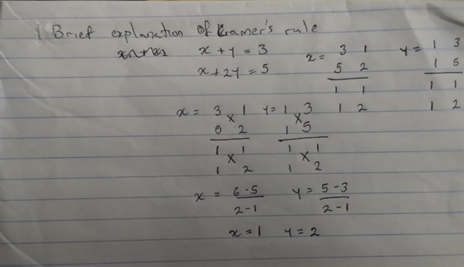 1 Brief explanation of Cramer's rule
x + y = 3
x + 2y = 5
x = 3 1
5 2
1 1
1 2
y = 1 3
1 5
1 1
1 2
x = 3 x 1
5 2
1 x 1
1 2
y = 1 x 3
1 5
1 x 1
1 2
x = 6-5
2-1
y = 5-3
2-1
x = 1 y = 2